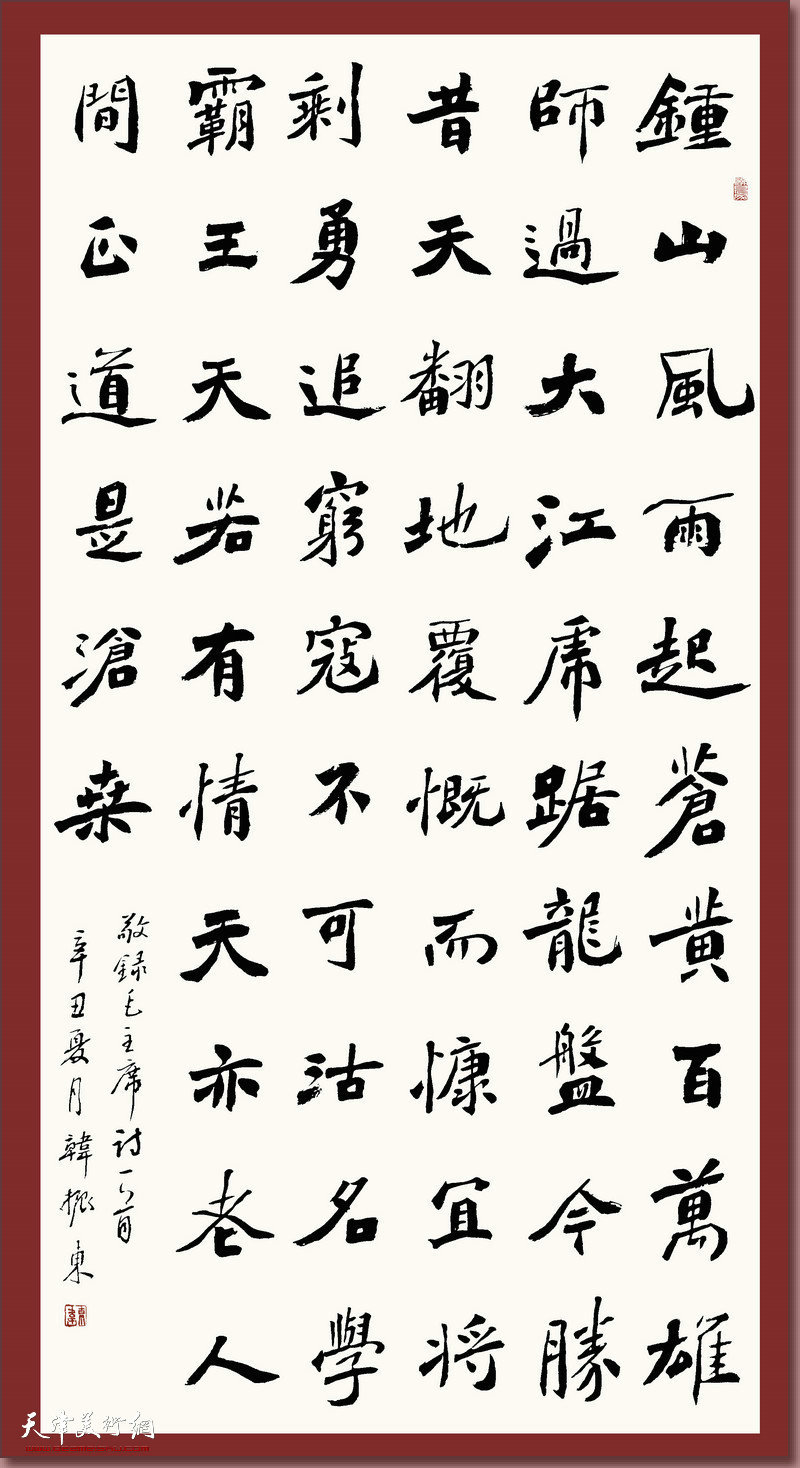 鍾山風雨起蒼黄百萬雄
師過大江虎踞龍盤今勝
昔天翻地覆慨而慷宜將
剩勇追窮寇不可沽名學
霸王天若有情天亦老人
間正道是滄桑
敬録毛主席詩一首
辛丑夏月韓振東
天津美術網